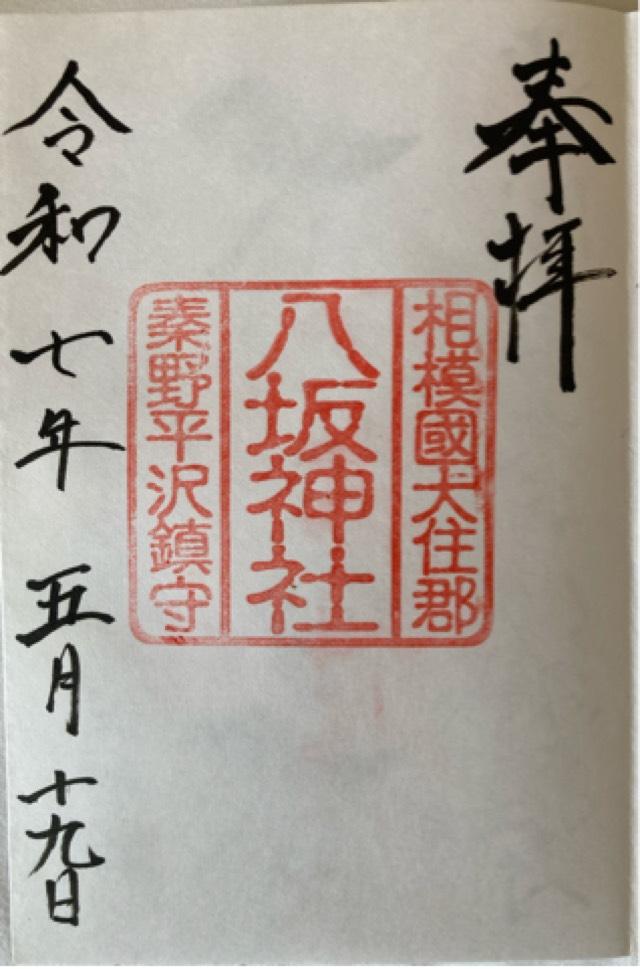 奉拝
相模國大住郡
八坂神社
秦野平沢鎮守
令和七年五月十九日